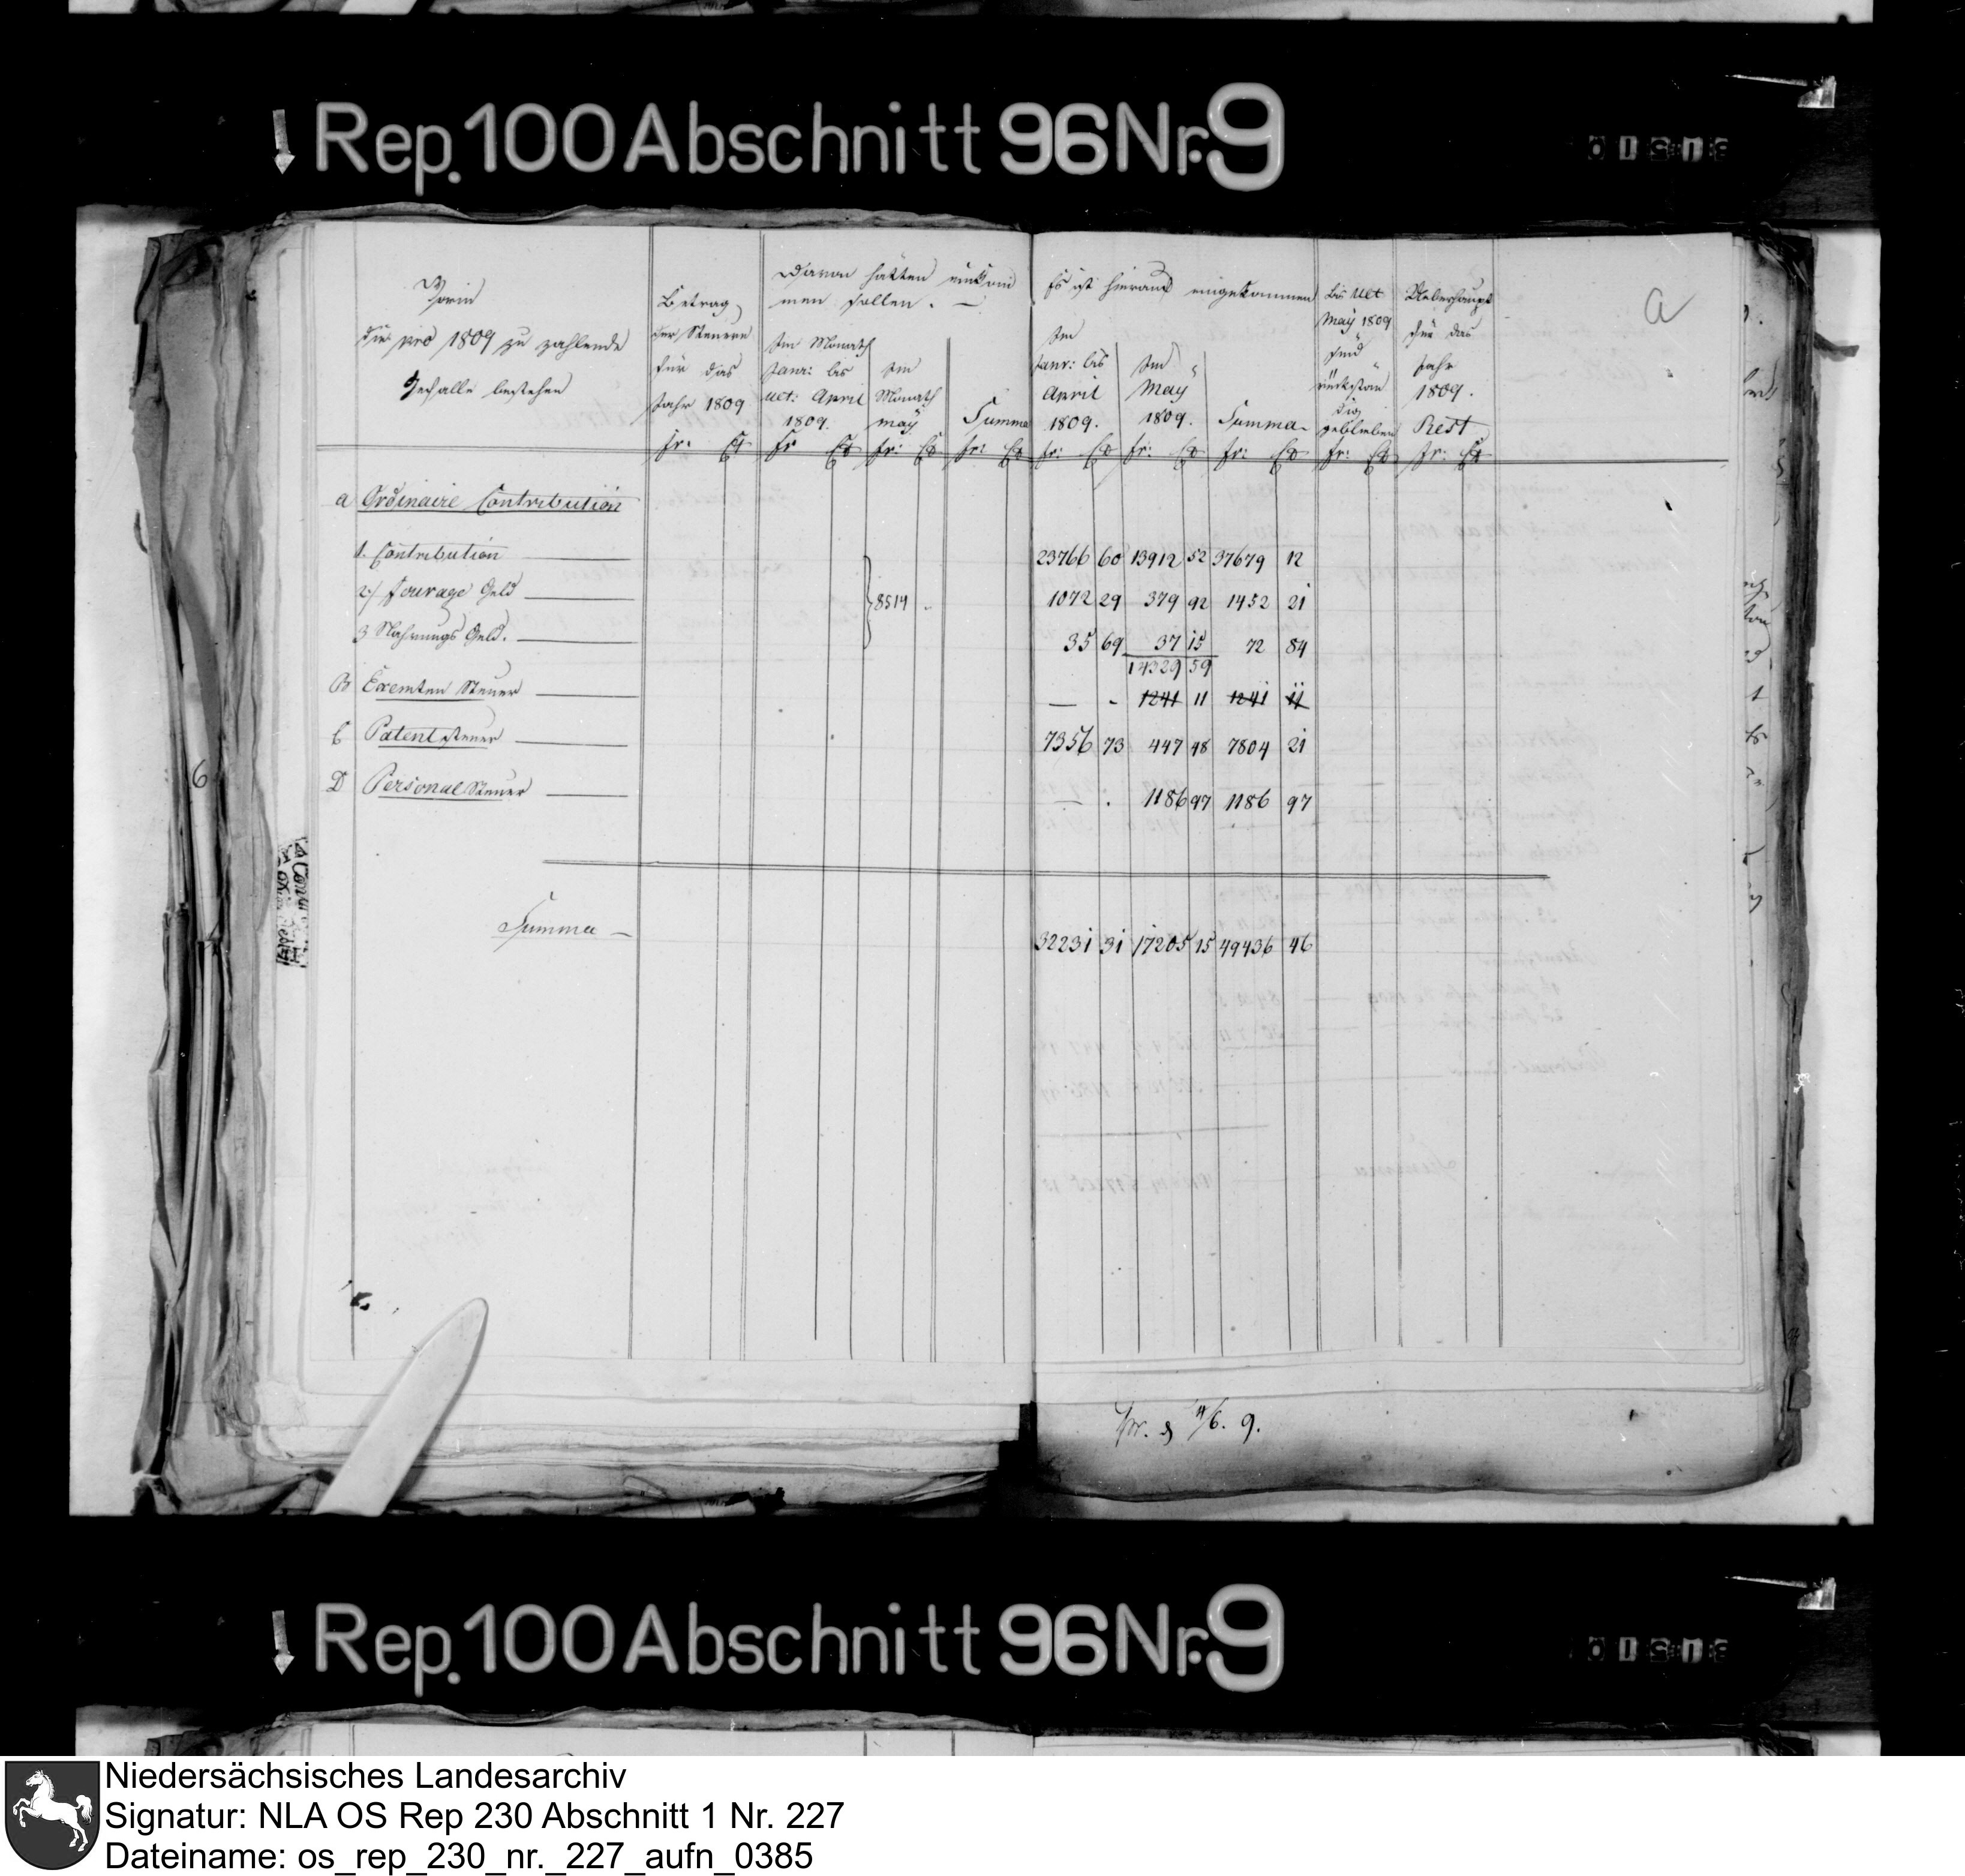 Rep. 100 Abschnitt 96 Nr. 9
Worin
die pro 1809 zu zahlende
Gefälle bestehen
Betrag
der Steuern
für das
Jahr 1809
Fr: Ct
Davon hätten einkom
men sollen. —
Im Monath
Janr: bis
ult: April
1809.
Fr Ct
Im
Monath
may
Fr: Ct
Summa
Fr: Ct
Es ist hierauf eingekommen
Im
Janr: bis
April
1809.
Fr: Ct
Im
May
1809.
Fr: Ct
Summa
Fr: Ct
bis ult
May 1809
sind
rückstän
dig
geblieben
Fr: Ct
Ueberhaupt
für das
Jahr
1809.
Rest
Fr: Ct
a
a Ordinaire Contribution
1. Contribution 23766 60 13912 52 37679 12
2/ Fourage Geld 8514 .. 1072 29 379 92 1452 21
3 Nahrungs Geld. 35 69 37 15 72 84
14329 59
B Exemten Steuer — - 1241 11 1241 11
C Patentsteuer 7356 73 447 48 7804 21
D Personal Steuer — . 1186 97 1186 97
Summa — 32231 31 17205 15 49436 46
6
pr. d 4/6. 9.
Rep. 100 Abschnitt 96 Nr. 9
Niedersächsisches Landesarchiv
Signatur: NLA OS Rep 230 Abschnitt 1 Nr. 227
Dateiname: os_rep_230_nr._227_aufn_0385